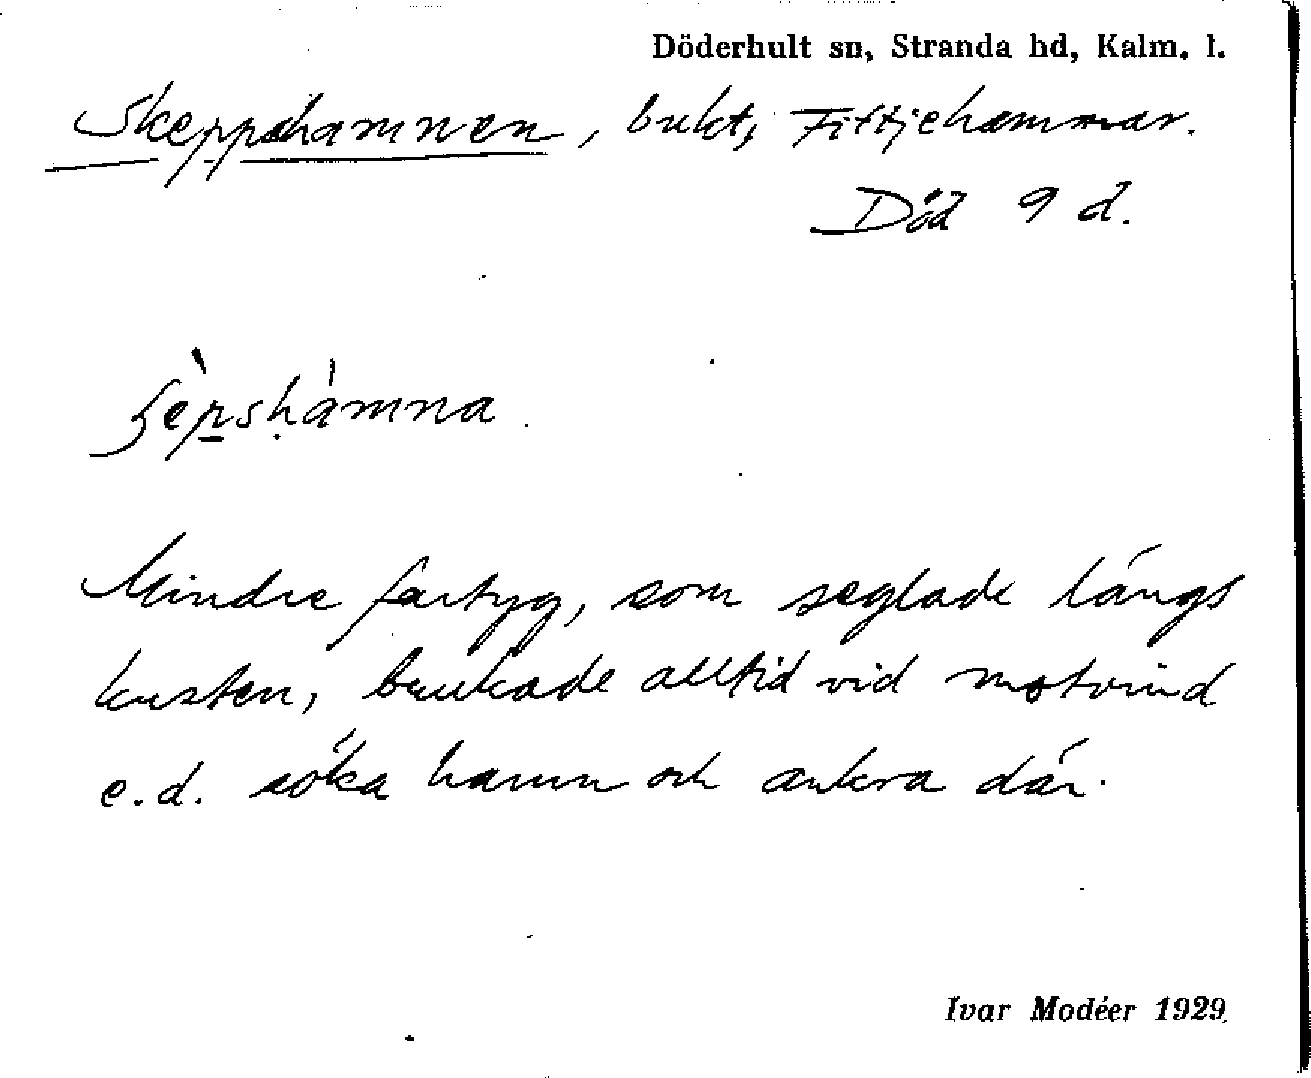 Döderhult sn, Stranda hd, Kalm. l.
Skeppshamnen, bukt, Fittjehammar.
Död 9 d.
ʂèpshàmna.
Mindre fartyg, som seglade längs
kusten, brukade alltid vid motvind
e.d. söka hamn och ankra där.
Ivar Modéer 1929